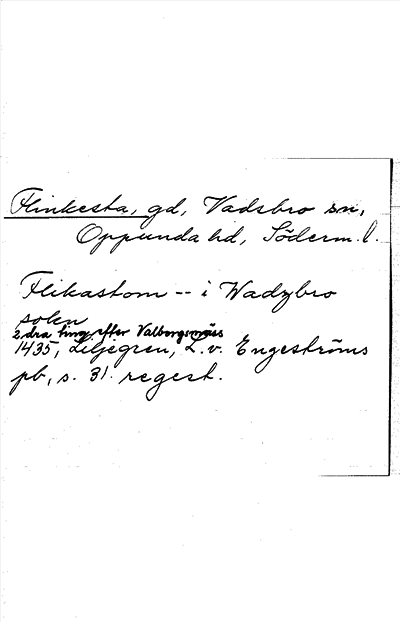 Flinkesta, gd, Vadsbro sn,
Oppunda hd, Söderm. l.
Flikastom -- i Wadzbro
sokn
2dra ting efter Valborgsmäss
1435, Liljegren, L. v. Engeströms
pb, s. 31. regest.